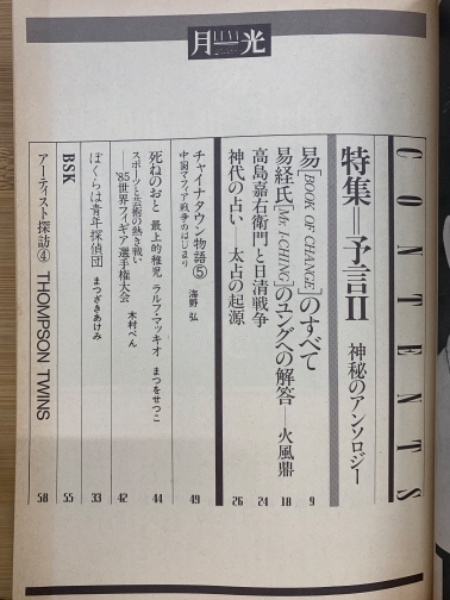 月光
CONTENTS
特集=予言II 神秘のアンソロジー
易[BOOK OF CHANGE]のすべて 9
易経氏[Mr. I-CHING]のユングへの解答―火風鼎 18
高島嘉右衛門と日清戦争 24
神代の占い―太占の起源 26
チャイナタウン物語⑤ 海野 弘 49
中国マフィア戦争のはじまり
死ねのおと 最上的稚児 ラルフ・マッキオ まつをせつこ 44
スポーツと芸術の熱き戦い
―'85世界フィギア選手権大会 木村べん 42
ぼくらは青年探偵団 まつざきあけみ 33
BSK 55
アーティスト探訪④ THOMPSON TWINS 58